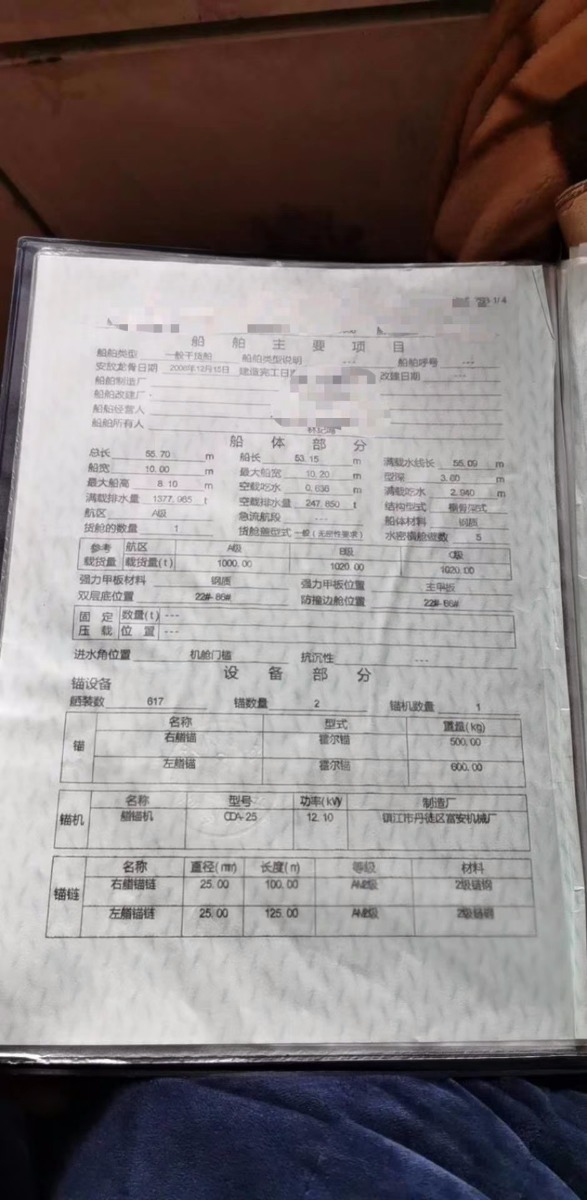 船舶主要项目
船舶类型 一般干货船 船舶类型说明 --- 船舶呼号 ---
安放龙骨日期 2006年12月15日 建造完工日 改建日期
船舶制造厂
船舶改建厂
船舶经营人
船舶所有人
船体部分
总长 55.70 m 船长 53.15 m 满载水线长 55.09 m
船宽 10.00 m 最大船宽 10.20 m 型深 3.60 m
最大船高 8.10 m 空载吃水 0.636 m 满载吃水 2.940 m
满载排水量 1377.965 t 空载排水量 247.650 t 结构型式 横骨架式
航区 A级 急流航段 --- 船体材料 钢质
货舱的数量 1 货舱盖型式 一般(无密性要求) 水密横舱壁数 5
参考 航区 A级 B级 C级
载货量 载货量(t) 1000.00 1020.00 1020.00
强力甲板材料 钢质 强力甲板位置 主甲板
双层底位置 22#-86# 防撞边舱位置 22#-86#
固定 数量(t) ---
压载 位置 ---
进水角位置 机舱门槛 抗沉性 ---
设备部分
锚设备
舾装数 617 锚数量 2 锚机数量 1
名称 型式 重量(kg)
锚 右艏锚 霍尔锚 500.00
左艏锚 霍尔锚 600.00
名称 型号 功率(kW) 制造厂
锚机 艏锚机 CDA-25 12.10 镇江市丹徒区富安机械厂
名称 直径(mm) 长度(m) 等级 材料
锚链 右艏锚链 25.00 100.00 AM2级 2级链钢
左艏锚链 25.00 125.00 AM2级 2级链钢